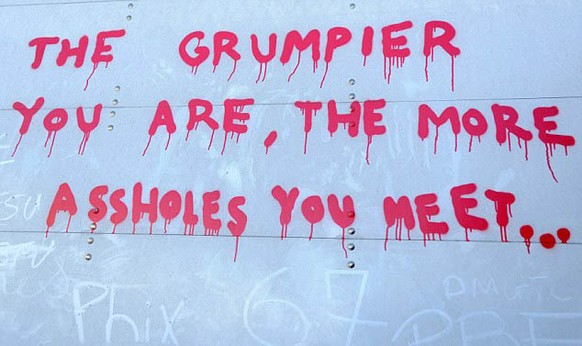 THE GRUMPIER
YOU ARE, THE MORE
ASSHOLES YOU MEET...
Phix 67